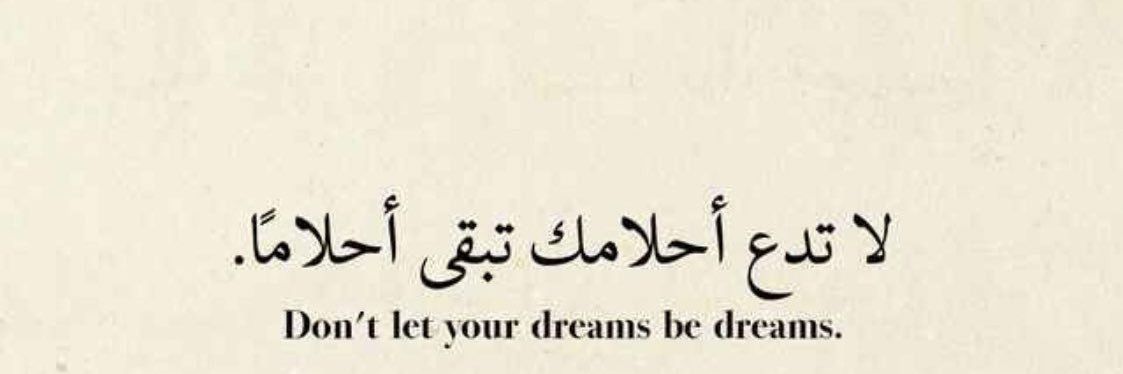 لا تدع أحلامك تبقى أحلامًا.
Don't let your dreams be dreams.